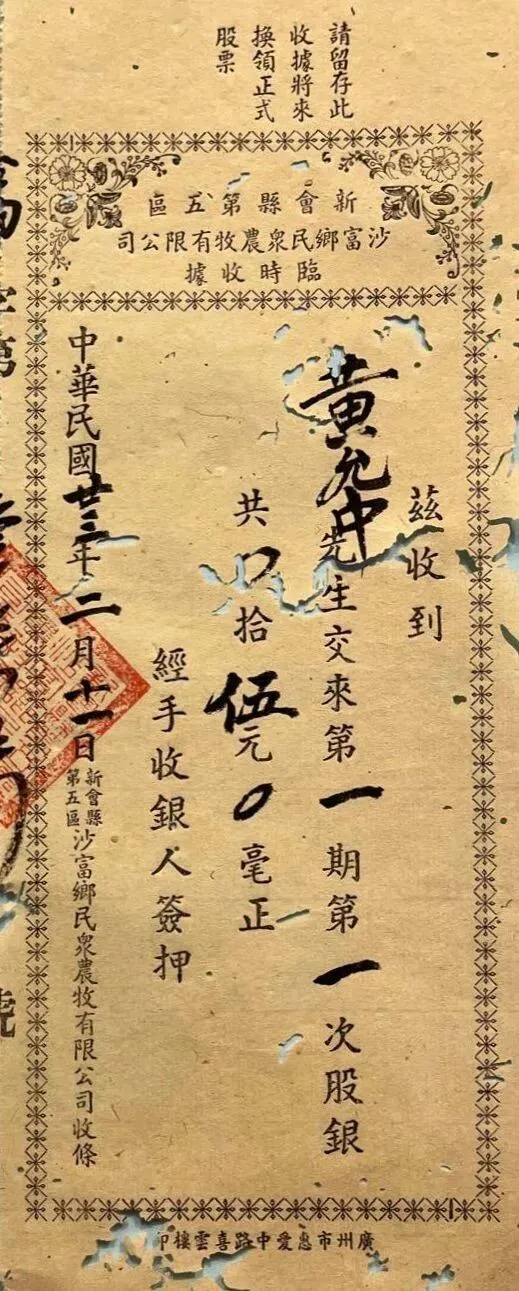 請留存此
收據將來
換領正式
股票
新會縣第五區
沙富鄉民衆農牧有限公司
臨時收據
茲收到
黃允中先生交來第一期第一次股銀
共0拾伍元0毫正
經手收銀人簽押
中華民國廿三年二月十一日新會縣第五區沙富鄉民衆農牧有限公司收條
號
廣州市惠愛中路喜雲樓印